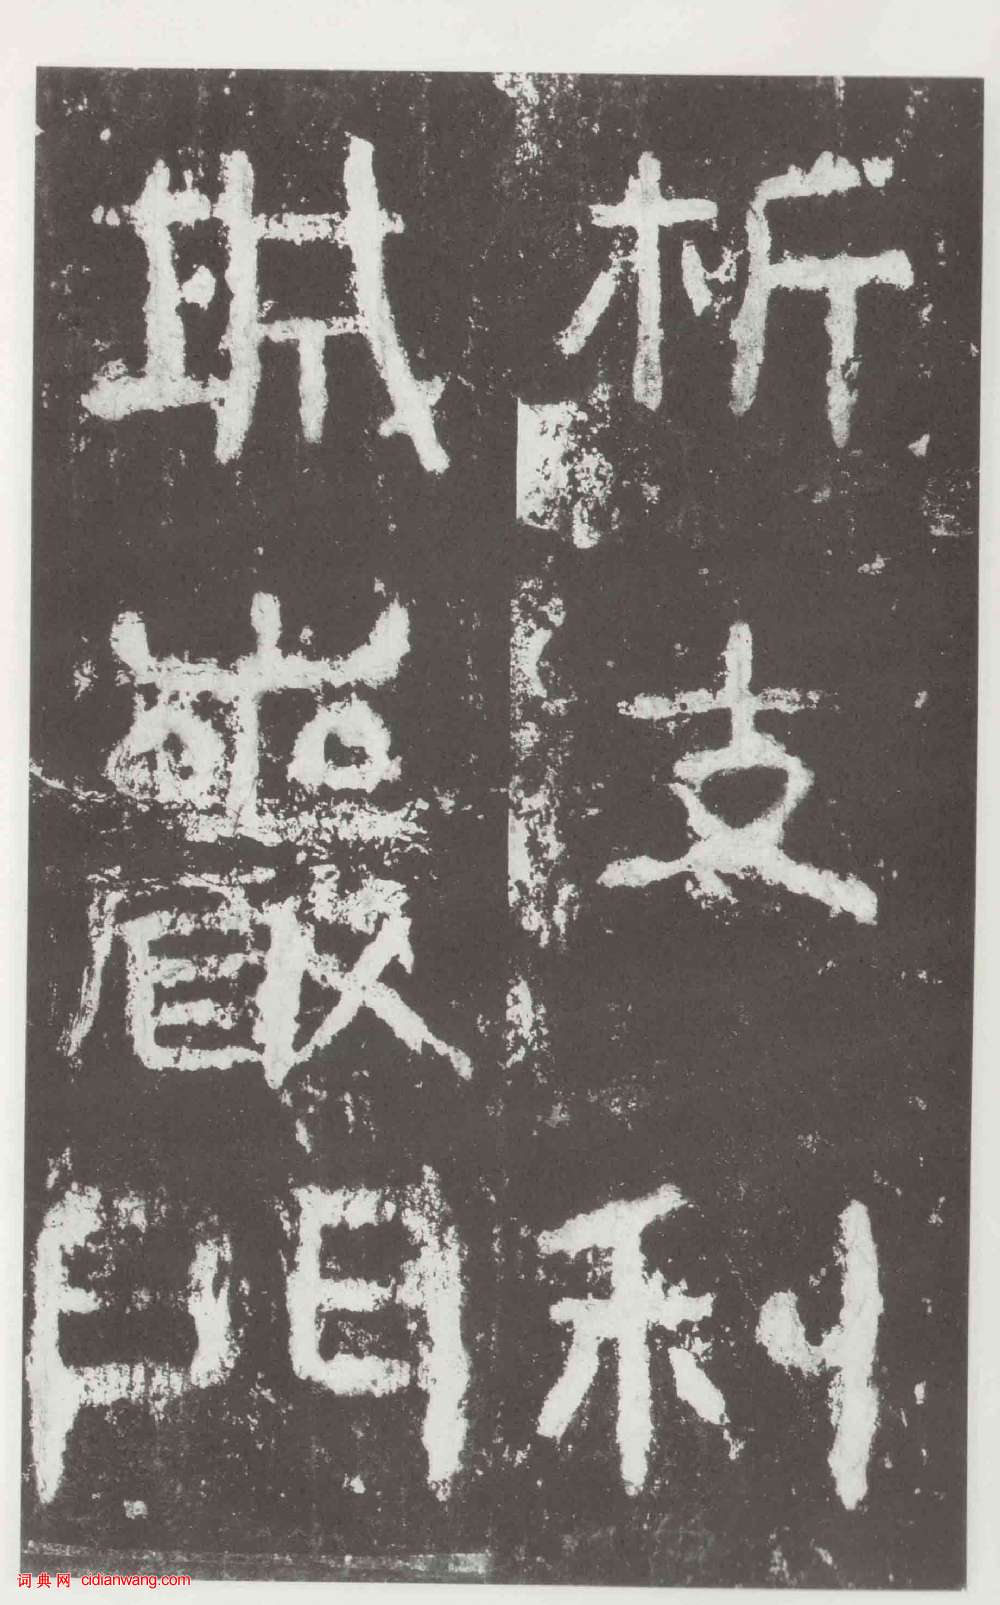 析支利
巖門
词典网 cidianwang.com